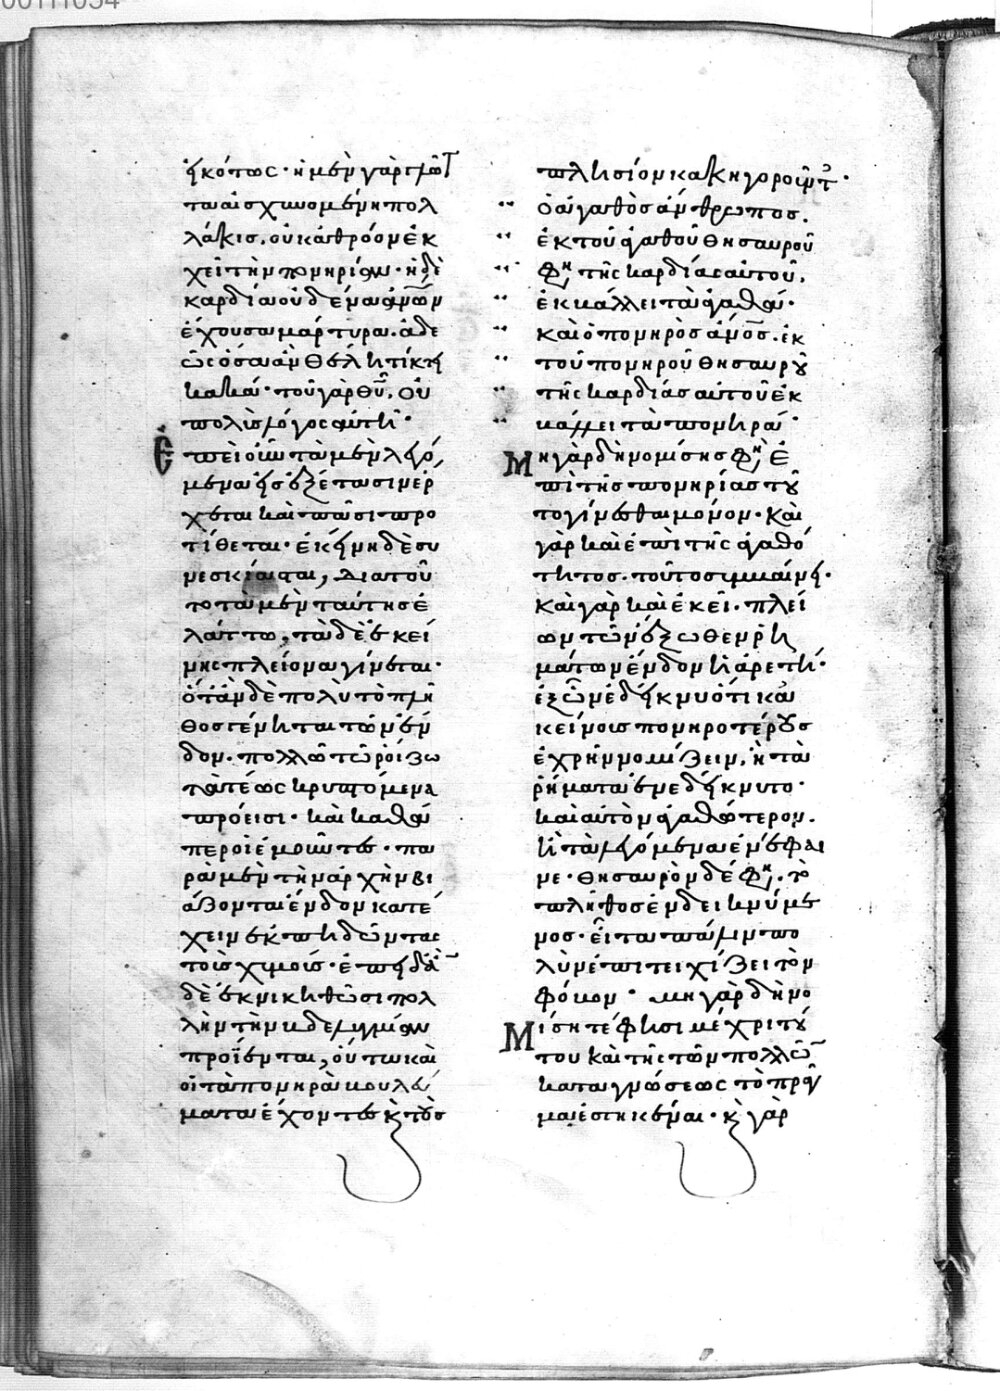 εἰκότως· ἡ μὲν γὰρ γλῶτ
τα αἰσχυνομένη πολ
λάκις, οὐκ ἀθρόον ἐκ
χεῖ τὴν πονηρίαν· ἡ δὲ
καρδία οὐδένα ἀνθρώπων
ἔχουσα μάρτυρα. ἀδε
ῶς ὅσα ἂν θέλῃ τίκτει
κακά· τοῦ γὰρ θῦ, οὐ
πολὺς λόγος αὐτῆ·
Ἐπεὶ οὖν τὰ μὲν λεγό
μενα εἰς ἐξέτασιν ἔρ
χεται καὶ πᾶσι προ
τίθεται· ἐκείνη δὲ συ
νεσκίασται, διὰ τοῦ
το τὰ μὲν ταύτης ἐ
λάττω, τὰ δὲ ἐκεί
νης πλείονα γίνεται·
ὅταν δὲ πολὺ τὸ πλῆ
θος γένηται τῶν ἔν
δον. πολλῶ τῶ ῥοίζω
τὰ τέως κρυπτόμενα
πρόεισι· καὶ καθά
περ οἱ ἐμοῦντες· πα
ρὰ μὲν τὴν ἀρχὴν βι
άζονται ἔνδον κατέ
χειν ἐκπηδῶντας
τοὺς χυμούς· ἐπειδὰν
δὲ ἐκνικηθῶσι πολ
λὴν τὴν βδελυγμίαν
προΐενται, οὕτω καὶ
οἱ τὰ πονηρὰ βουλεύ
ματα ἔχοντες κ τοὺς
πλησίον κακηγοροῦντες·
Ὁ ἀγαθὸς ἄνθρωπος.
ἐκ τοῦ ἀγαθοῦ θησαυροῦ
φη τῆς καρδίας αὐτοῦ,
ἐκβάλλει τὰ ἀγαθά·
καὶ ὁ πονηρὸς ἄνος. ἐκ
τοῦ πονηροῦ θησαυροῦ
τῆς καρδίας αὐτοῦ ἐκ
βάλλει τὰ πονηρά·
Μὴ γὰρ δὴ νομίσης φη, ἐ
πὶ τῆς πονηρίας τοῦ
το γίνεσθαι μόνον· καὶ
γὰρ καὶ ἐπὶ τῆς ἀγαθό
τητος. τοῦτο συμβαίνει·
καὶ γὰρ καὶ ἐκεῖ· πλεί
ων τῶν ἔξωθεν ῥη
μάτων ἔνδον ἡ ἀρετή·
ἐξ ὧν ἐδείκνυ ὅτι κἀ
κείνους πονηροτέρους
ἐχρῆν νομίζειν, ἢ τὰ
ῥήματα ἐνεδείκνυτο·
καὶ αὐτὸν ἀγαθώτερον.
ἢ τὰ λεγόμενα ἐνέφαι
νε· θησαυρὸν δέ φη, τὸ
πλῆθος ἐνδεικνύμε
νος· εἶτα πάλιν πο
λὺν ἐπιτειχίζει τὸν
φόβον· μὴ γὰρ δὴ νο
Μίσητέ φησι μέχρι τού
του καὶ τῆς τῶν πολλῶν
καταγνώσεως τὸ πρᾶγ
μα ἑστηκέναι· κ γὰρ